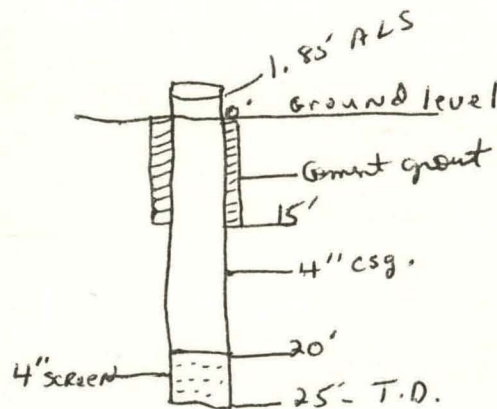 1.85' ALS
0' Ground level
Cement grout
15'
4" csg.
20'
4" SCREEN
25'- T.D.